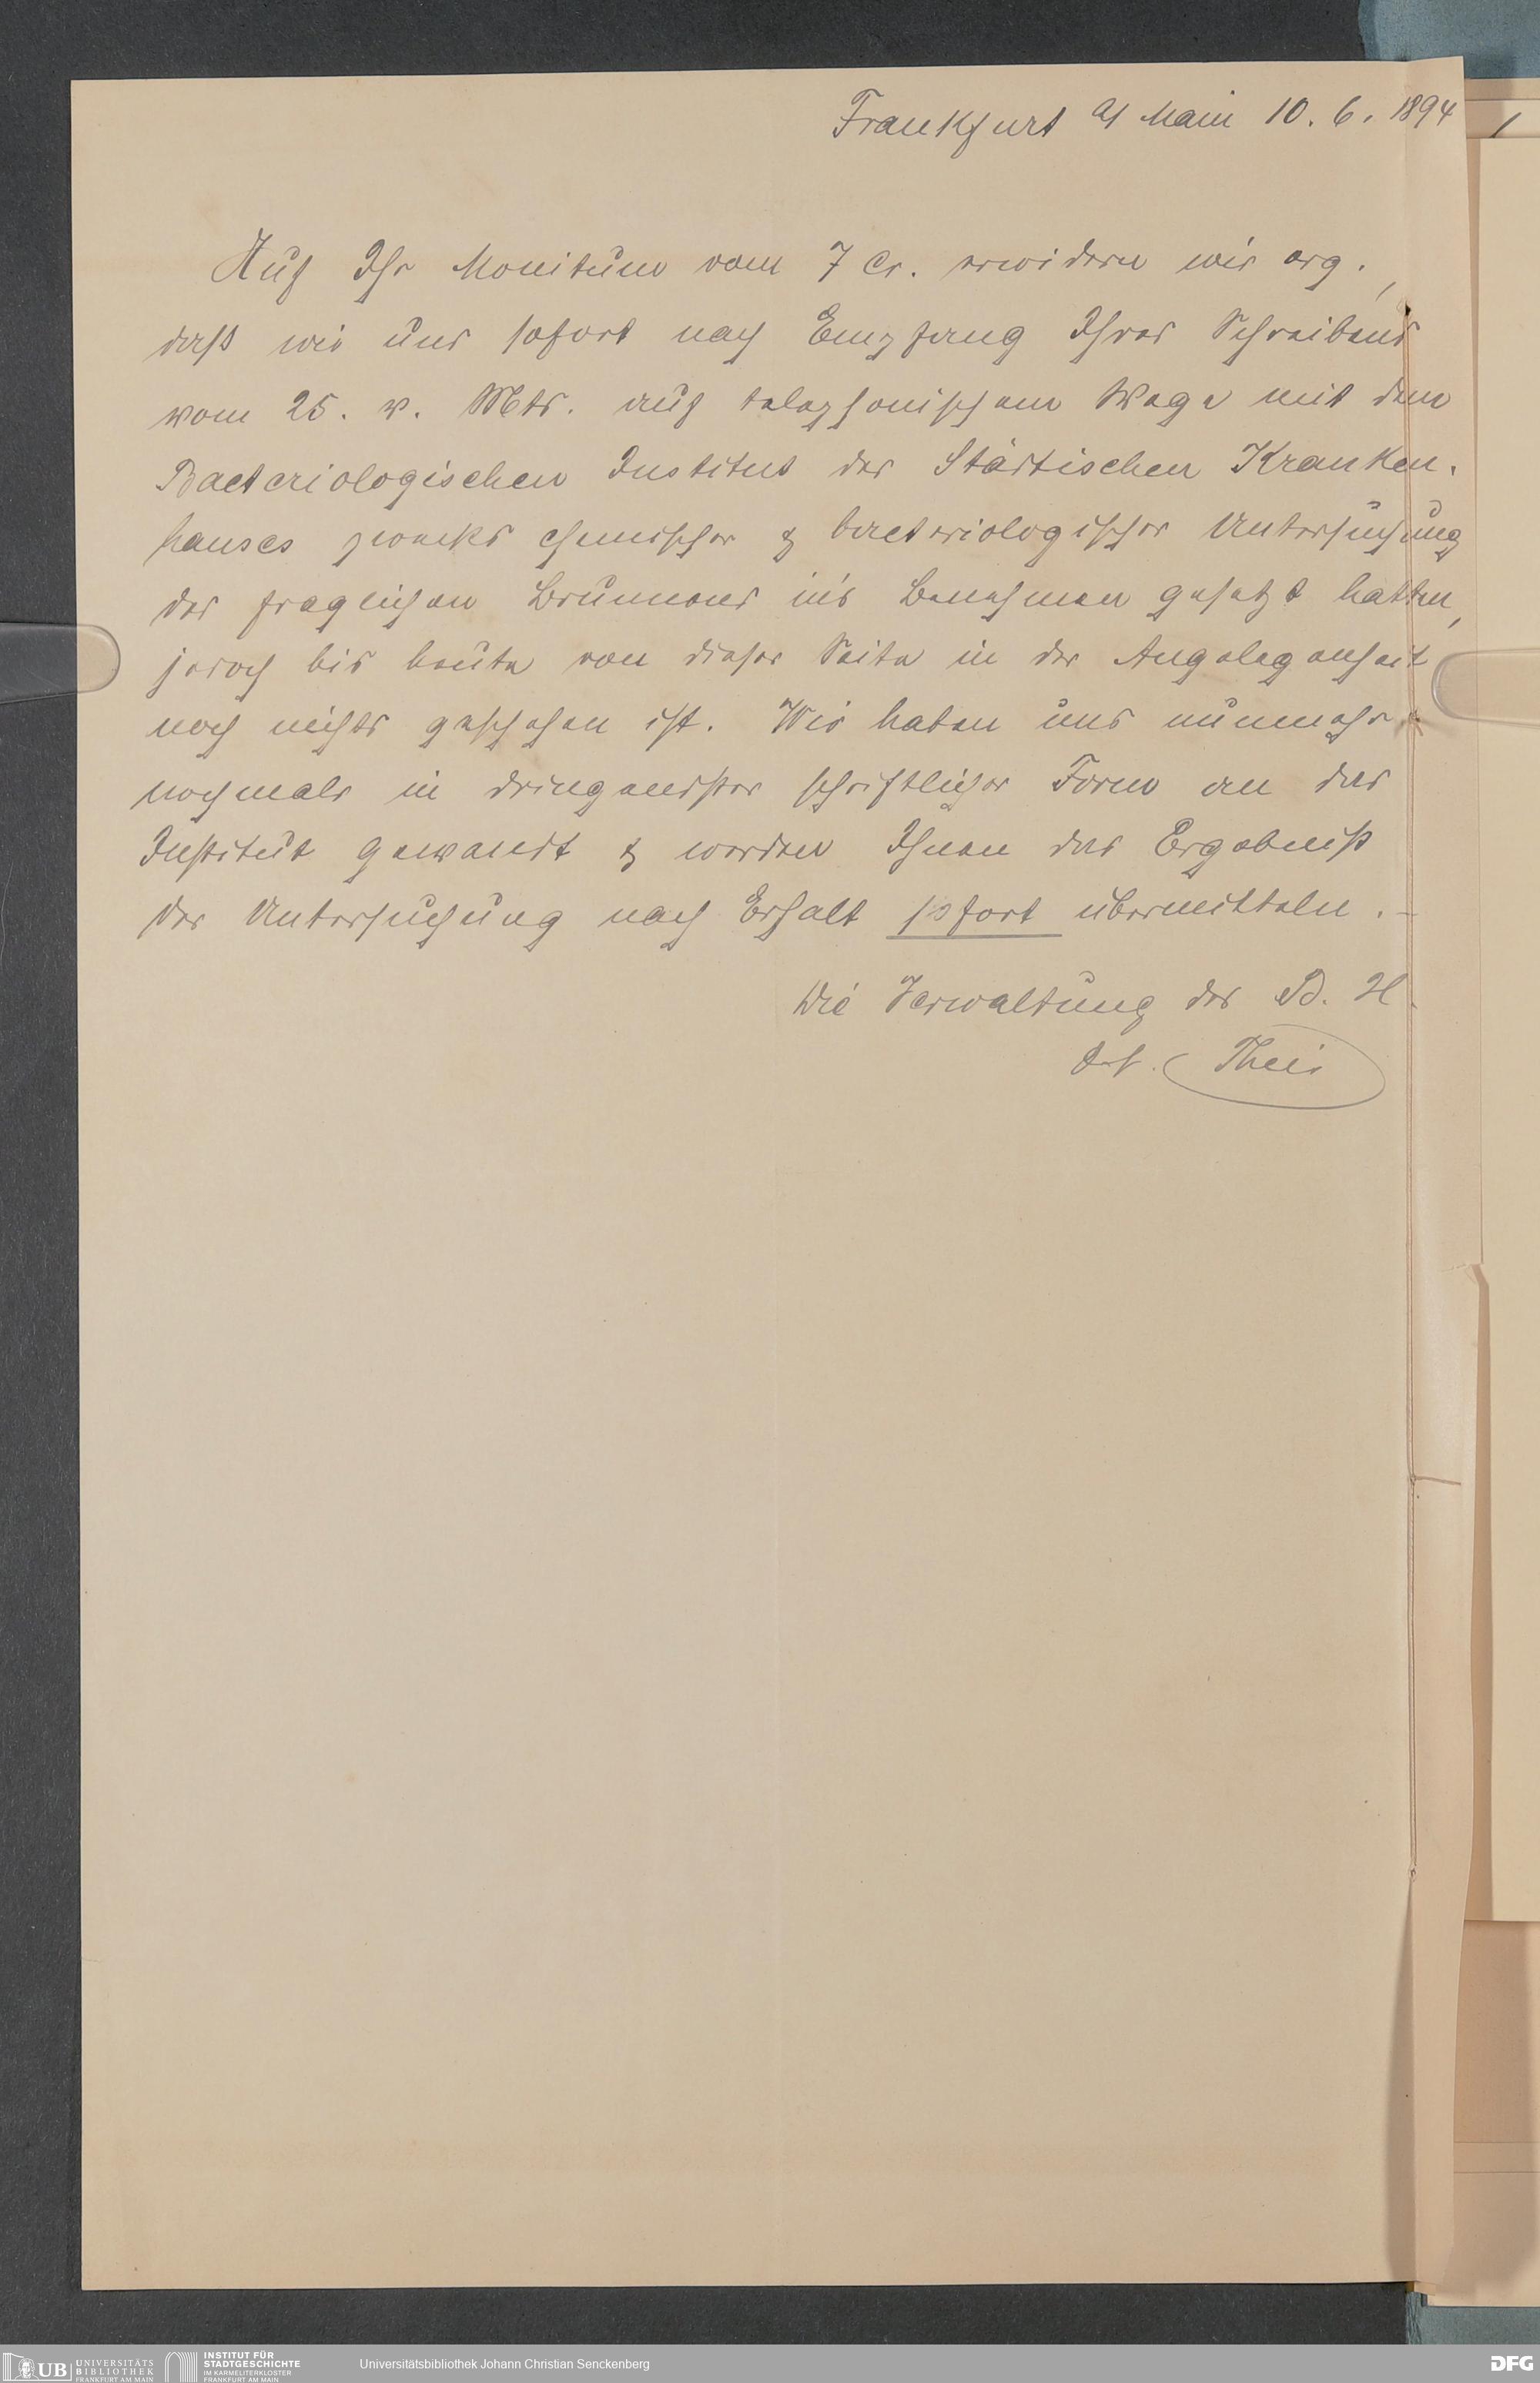 Frankfurt a/ Main 10. 6. 1894
Auf Ihr Monitum vom 7 cr. erwidern wir erg.,
daß wir uns sofort nach Empfang Ihres Schreibens
vom 25. v. Mts. auf telephonischem Wege mit dem
Bacteriologischen Institut des Städtischen Kranken-
hauses zwecks chemischer & bacteriologischer Untersuchung
des fraglichen Brunnens in's Benehmen gesetzt hatten,
jedoch bis heute von dieser Seite in der Angelegenheit
noch nichts geschehen ist. Wir haben uns nunmehr
nochmals in dringendster schriftlicher Form an das
Institut gewandt & werden Ihnen das Ergebniß
der Untersuchung nach Erhalt sofort übermitteln. –
Die Verwaltung des B. H.
Theis
UB UNIVERSITÄTS
BIBLIOTHEK
FRANKFURT AM MAIN
INSTITUT FÜR
STADTGESCHICHTE
IM KARMELITERKLOSTER
FRANKFURT AM MAIN
Universitätsbibliothek Johann Christian Senckenberg
DFG